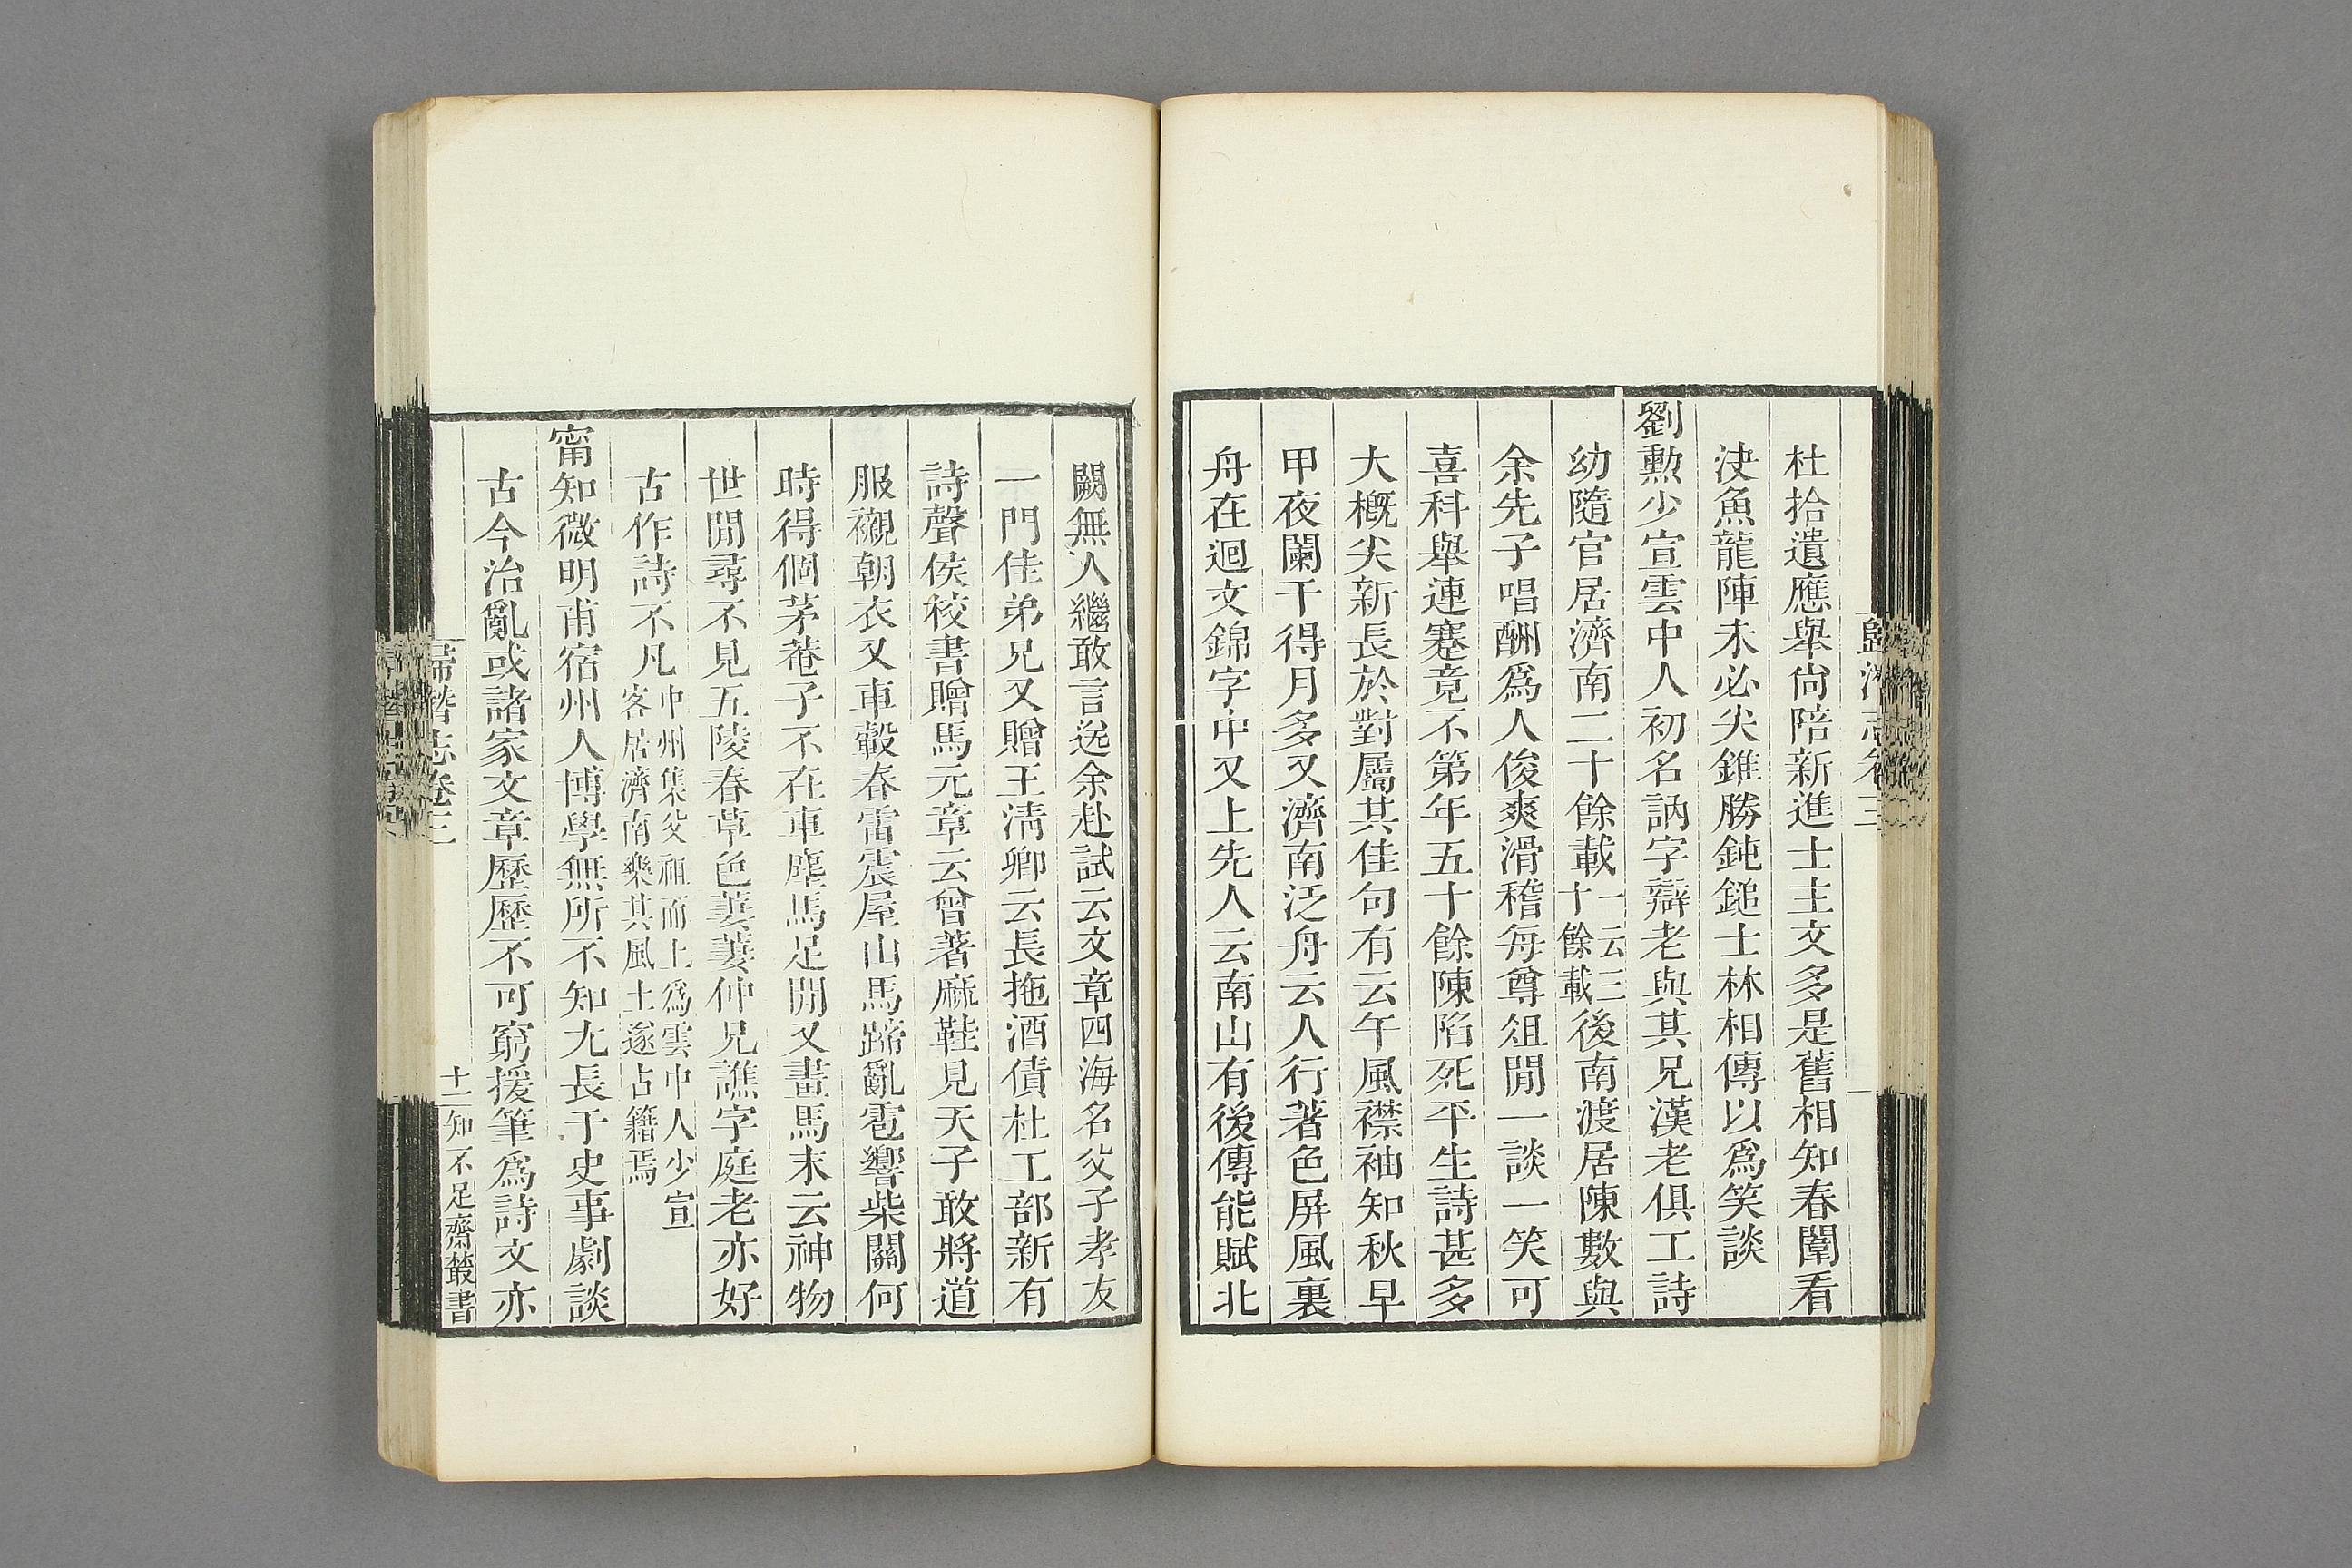 杜拾遺應舉尙陪新進士主文多是舊相知春闈看
決魚龍陣未必尖錐勝鈍鎚士林相傳以爲笑談
劉勲少宣雲中人初名訥字辯老與其兄漢老俱工詩
幼隨官居濟南二十餘載一云三十餘載後南渡居陳數與
余先子唱酬爲人俊爽滑稽每尊俎閒一談一笑可
喜科舉連蹇竟不第年五十餘陳陷死平生詩甚多
大槪尖新長於對屬其佳句有云午風襟袖知秋早
甲夜闌干得月多又濟南泛舟云人行著色屏風裏
舟在迴文錦字中又上先人云南山有後傳能賦北
闕無人繼敢言送余赴試云文章四海名父子孝友
一門佳弟兄又贈王淸卿云長拖酒債杜工部新有
詩聲侯校書贈馬元章云曾著麻鞋見天子敢將道
服襯朝衣又車轂春雷震屋山馬蹄亂雹響柴關何
時得個茅菴子不在車塵馬足閒又畫馬末云神物
世閒尋不見五陵春草色萋萋仲兄譙字庭老亦好
古作詩不凡中州集父祖而上爲雲中人少宣
客居濟南樂其風土遂占籍焉
甯知微明甫宿州人博學無所不知尢長于史事劇談
古今治亂或諸家文章歷歷不可窮援筆爲詩文亦
歸潛志卷三
十一
知不足齋叢書